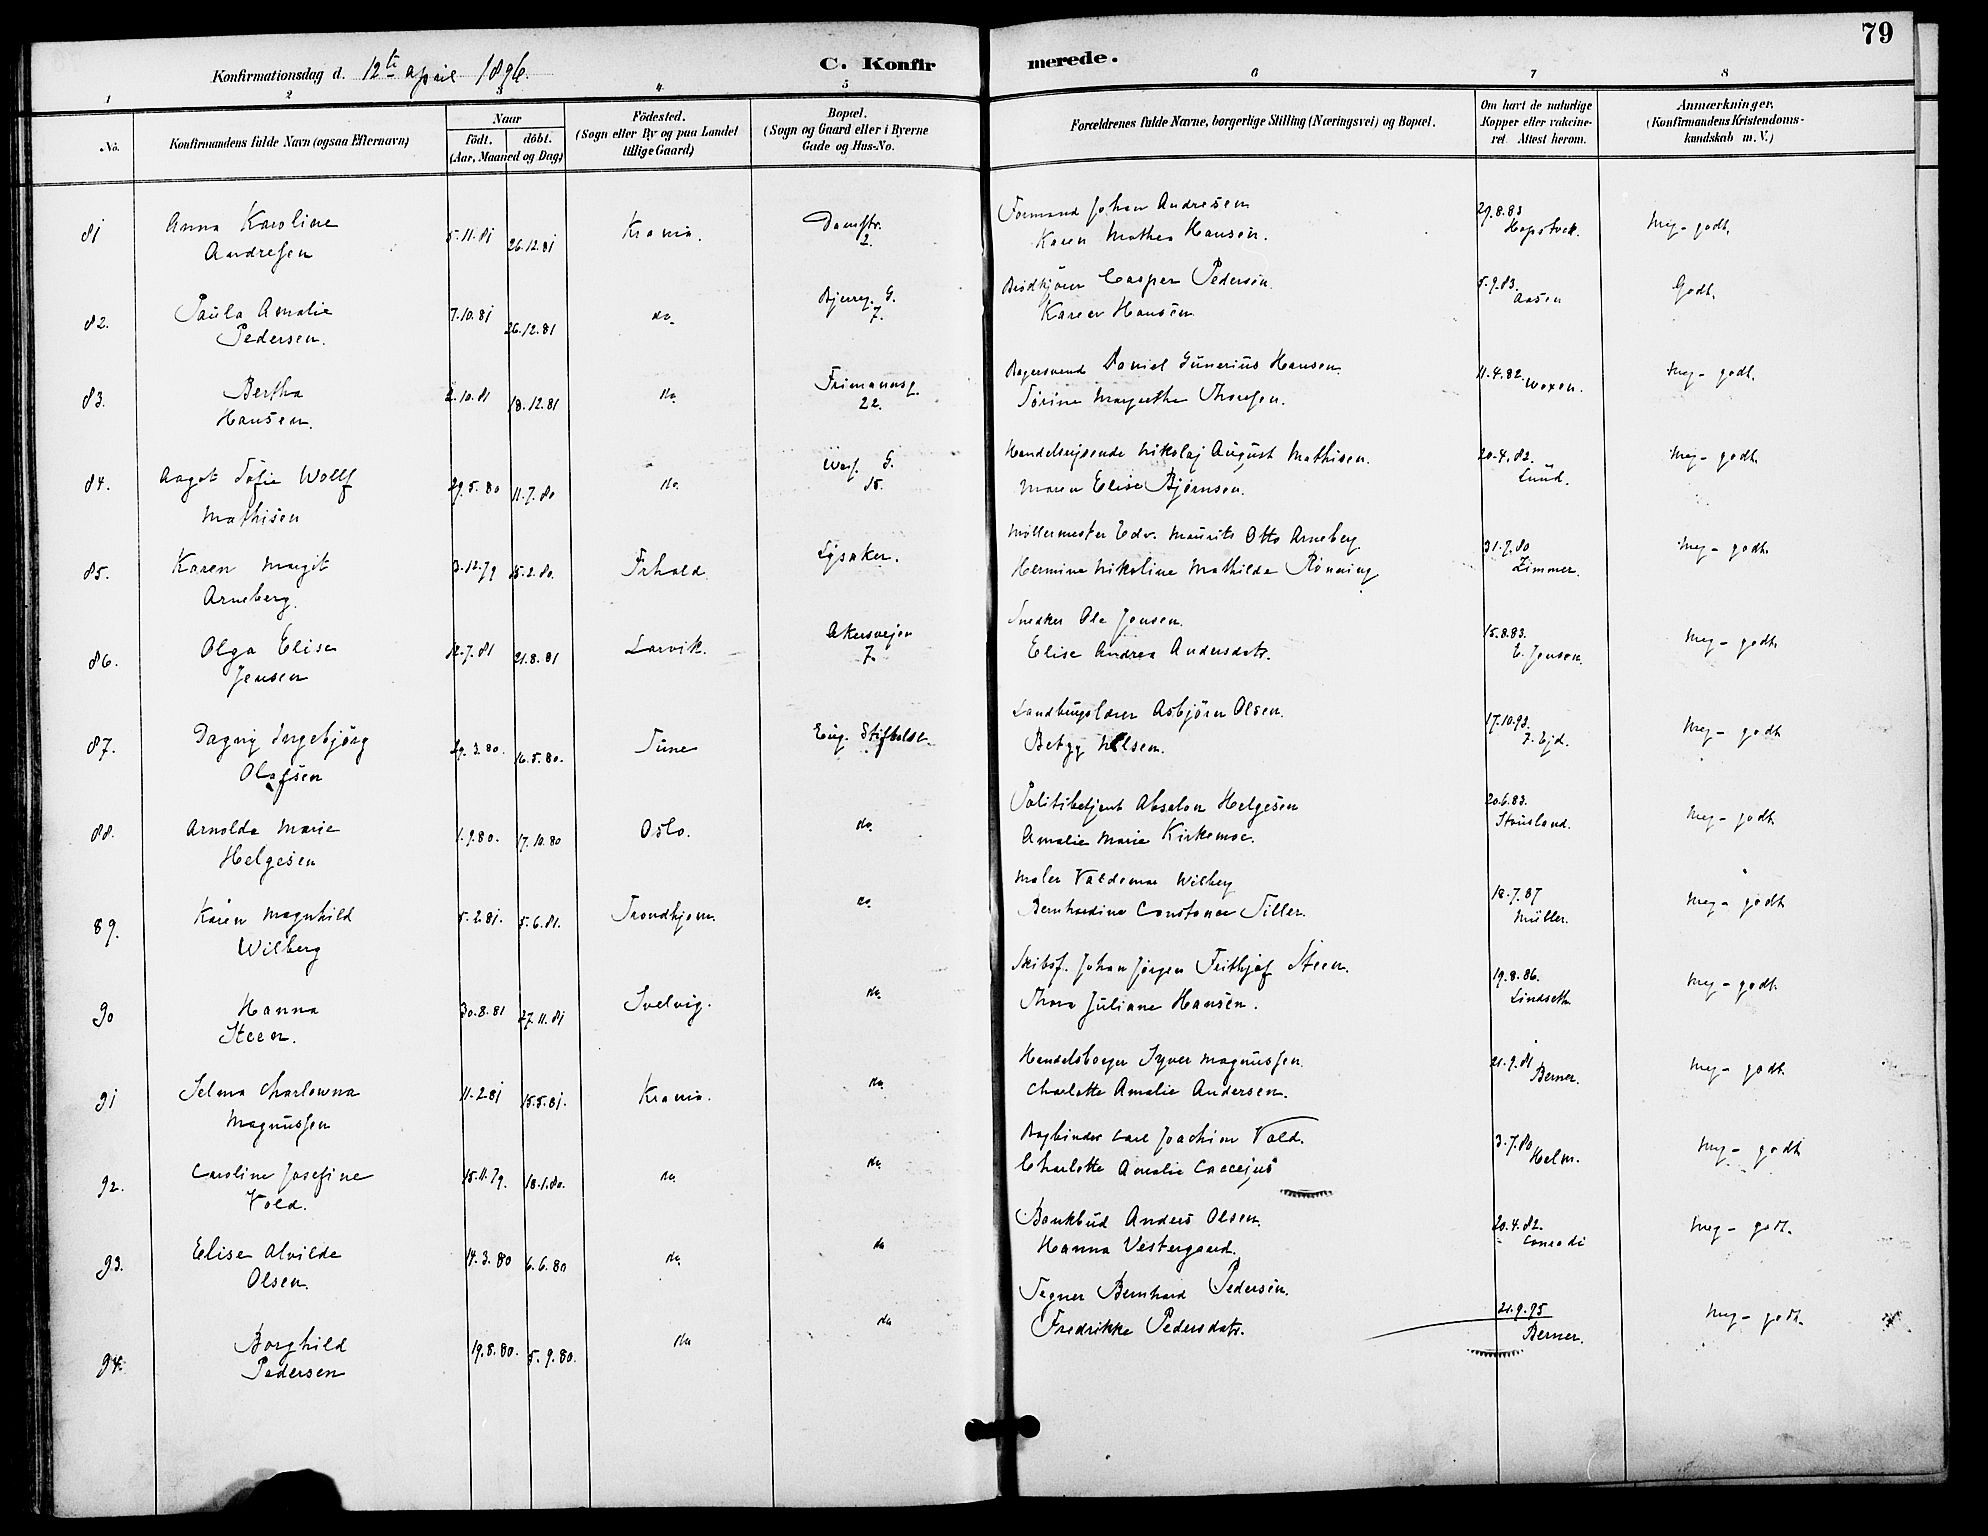 79
Konfirmationsdag d. 12te april 1896.
C. Konfirmerede.
1 2 3 4 5 6 7 8
No.
Konfirmandens fulde Navn (ogsaa Efternavn)
Naar
födt. döbt.
(Aar, Maaned og Dag)
Födested.
(Sogn eller By og paa Landet
tillige Gaard)
Bopæl.
(Sogn og Gaard eller i Byerne
Gade og Hus-No.
Forældrenes fulde Navne, borgerlige Stilling (Næringsvei) og Bopæl.
Om havt de naturlige
Kopper eller vakcine-
ret. Attest herom.
Anmærkninger.
(Konfirmandens Kristendoms-
kundskab m. V.)
81 Anna Karoline
Andresen
5.11.81 26.12.81 Krania. Damstr.
2.
Formand Johan Andresen
Karen Mathea Hansen.
29.8.83
Hopstock.
Meg. godt.
82. Paula Amalie
Pedersen.
7.10.81 26.12.81 do. Bjerreg. G.
7.
Brödkjörer Casper Pedersen.
Karen Hansen
5.9.83.
Aasen
Godt.
83. Bertha
Hansen.
2.10.81 18.12.81 do Frimannsg.
22.
Bagersvend Daniel Gunerius Hansen.
Sörine Margrethe Thoresen.
11.4.82. Woxen.
Meg - godt.
84. Aagot Sofie Wollf
Mathisen
29.5.80 11.7.80 do. G.
15.
Handelsrejsende Nikolaj August Mathisen.
Maren Elise Bjørnsen.
20.4.82.
Lund.
Meg - godt.
85. Karen Margit
Arneberg.
3.12.79 15.2.80. Frhald. Lysaker.
Möllermester Edv. Maurits Otto Arneberg
Hermine Nikoline Mathilde Rønning
31.7.80
Zimmer.
Meg - godt.
86. Olga Elise
Jensen
12.7.81 21.8.81 Larvik. Akersvejen
7.
Snedker Ole Jensen.
Elise Andrea Andersdatr.
15.8.83.
E. Jensen.
Meg - godt.
87. Dagny Ingebjörg
Olafsen
29.3.80. 16.5.80. Tune Eug. Stiftelse.
Landbrugslærer Asbjörn Olsen.
Betzy Nilsen.
17.10.93.
Meg - godt
88. Arnolda Marie
Helgesen
1.9.80. 17.10.80 Oslo. do.
Politibetjent Absalon Helgesen
Amalie Marie Kirkemoe.
20.6.83.
Stousland.
Meg - godt
89. Karen Magnhild
Wilberg
5.2.81. 5.6.81. Trondhjem. do
Maler Valdemar Wilberg
Bernhardine Constance Tiller.
18.7.87
Müller.
Meg - godt
90 Hanna
Steen.
30.8.81 27.11.81 Svelvig. do.
Skibsf. Johan Jörgen Frithjof Steen.
Thora Juliane Hansen.
19.8.86.
Lindseth.
Meg - godt.
91 Selma Charlowna
Magnussen
11.2.81 15.5.81. Krania. do
Handelsborger Syver Magnussen
Charlotte Amalie Andersen.
21.9.81
Berner.
Meg - godt
92. Caroline Josefine
Vold.
15.11.79. 18.1.80. do. do.
Bogbinder Carl Joachim Vold.
Charlotte Amalie Coccejus
3.7.80
Helm.
Meg - godt
93. Elise Alvilde
Olsen.
14.3.80 6.6.80 do. do
Bankbud Anders Olsen.
Hanna Vestergaard.
20.4.82.
Conradi
Meg - godt.
94. Borghild
Pedersen
19.8.80. 5.9.80. do do
Tegner Bernhard Pedersen.
Fredrikke Pedersdatr.
21.9.95
Berner.
Meg - godt.